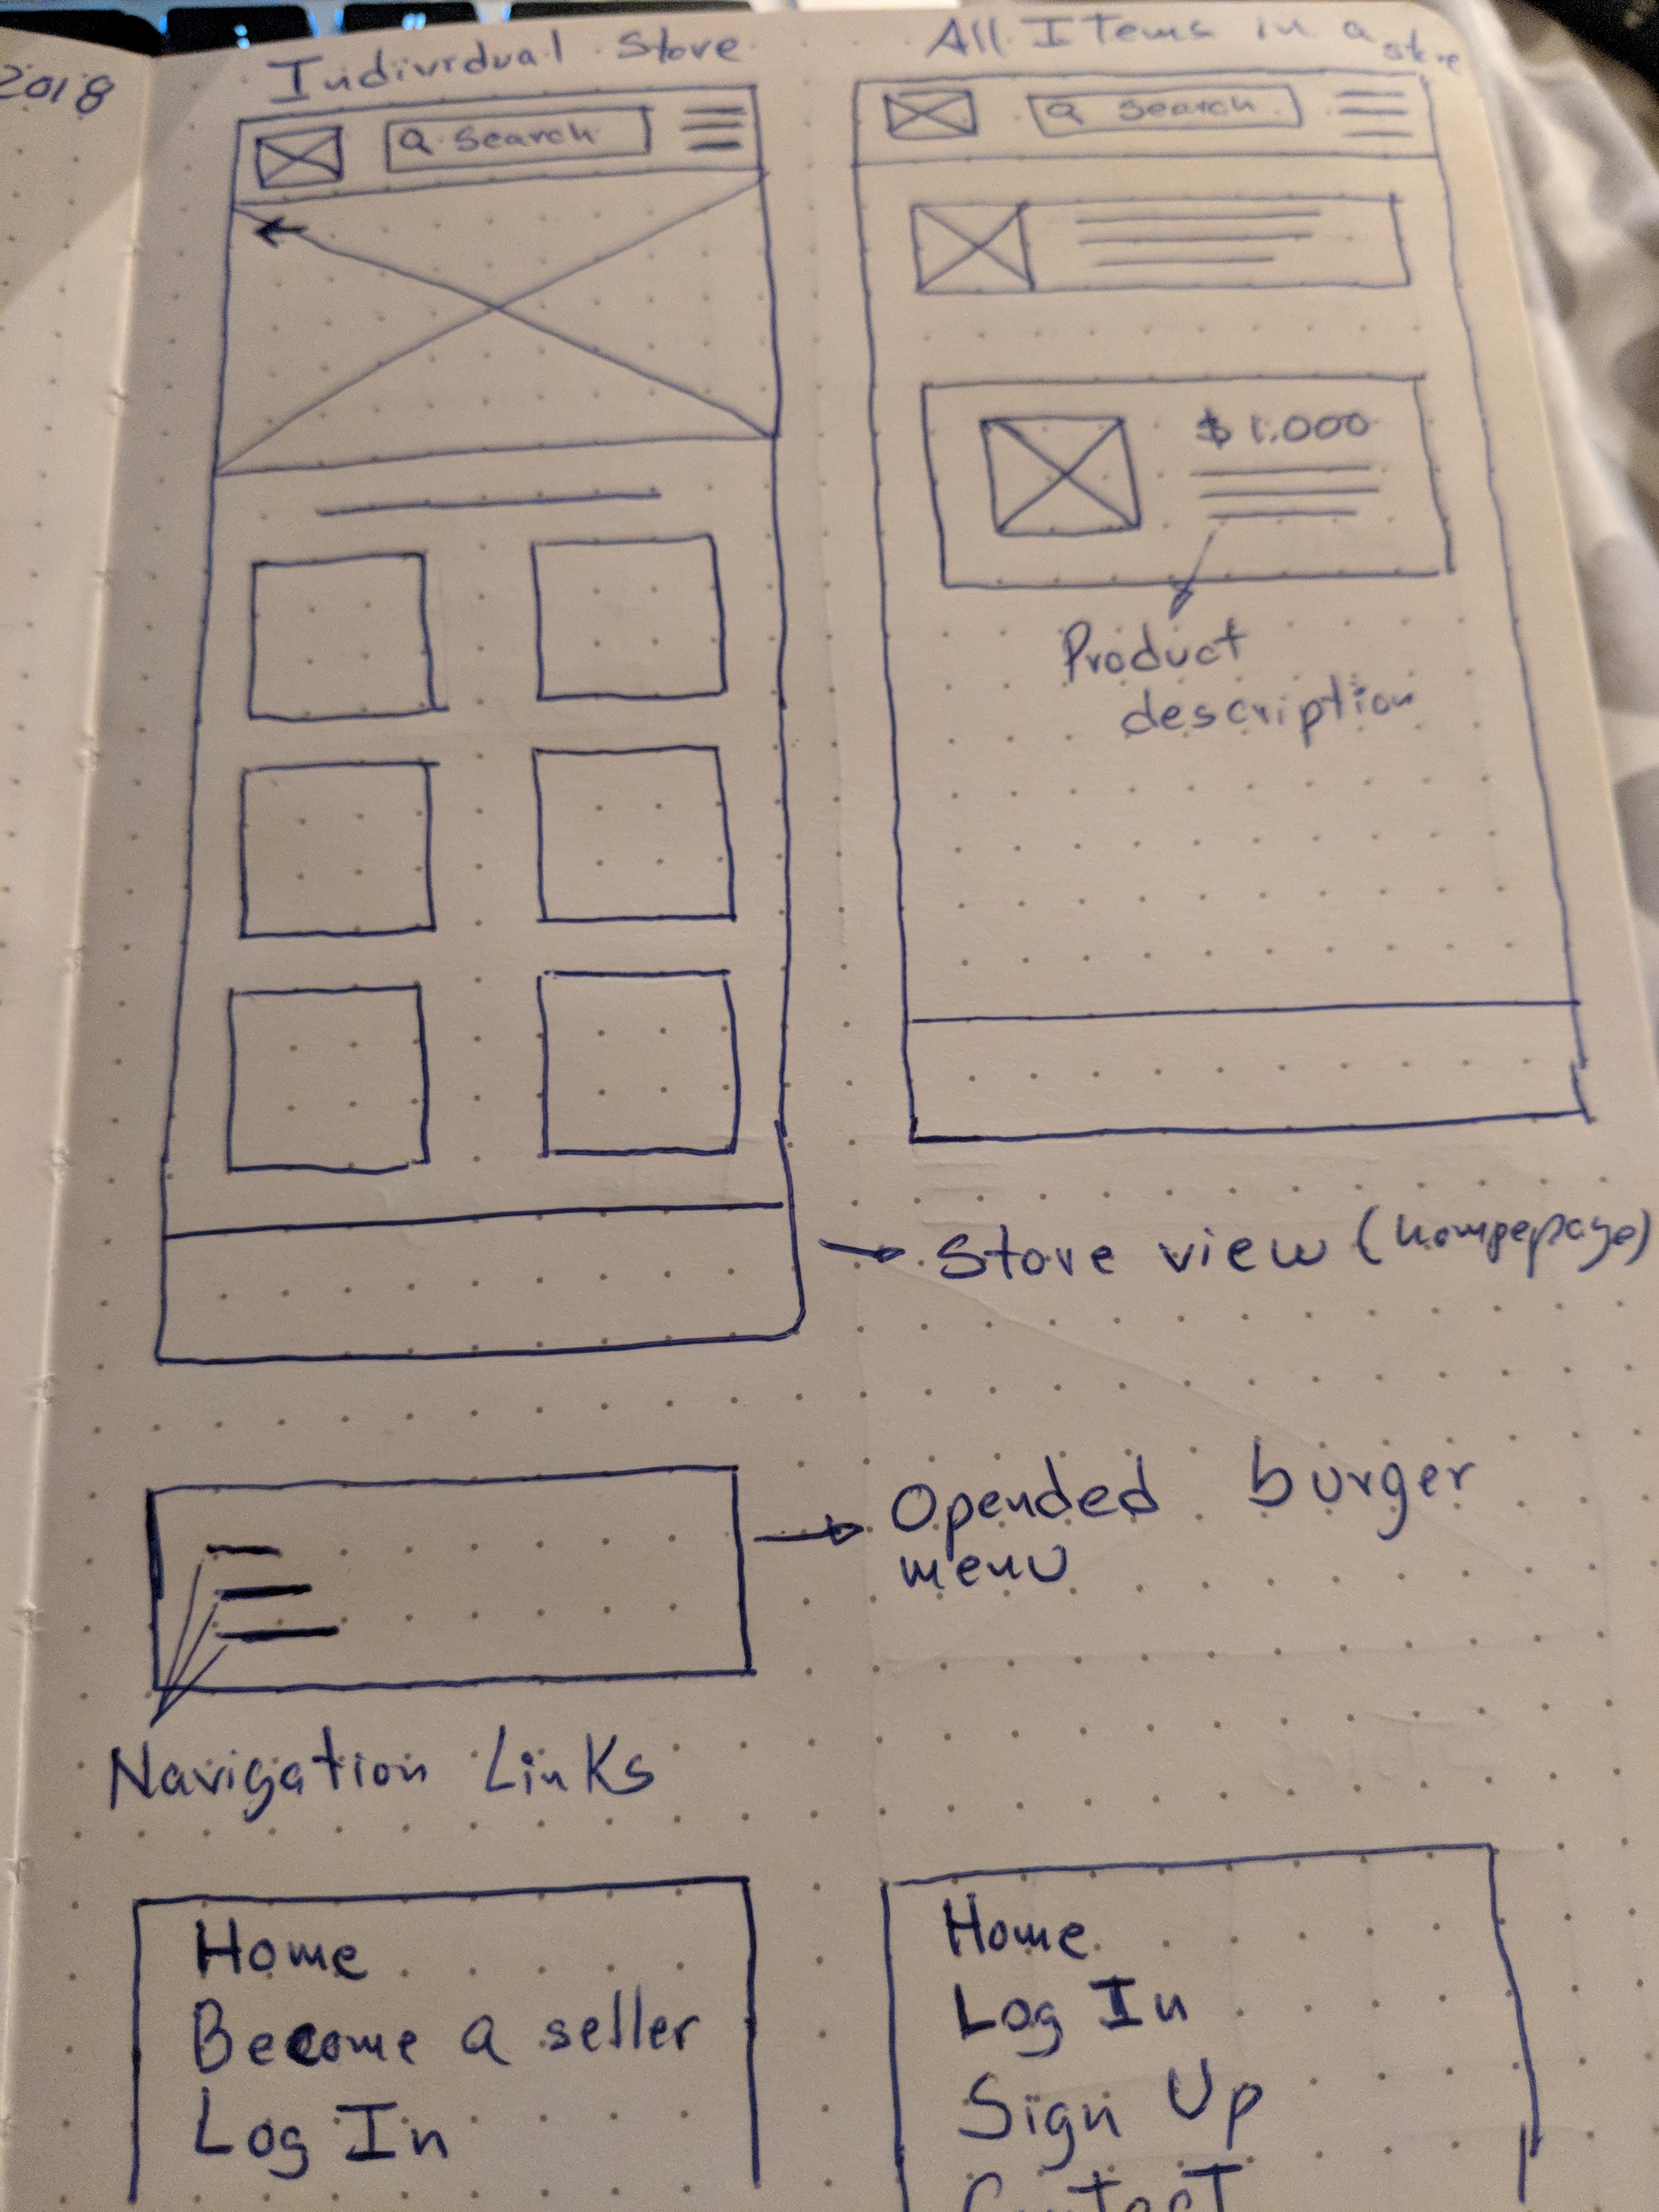 2018
Individual Store
Search
All Items in a
store
Search
$1.000
Product
description
Store view (hompepage)
Opended burger
menu
Navigation Links
Home
Become a seller
Log In
Home
Log In
Sign Up
Contact